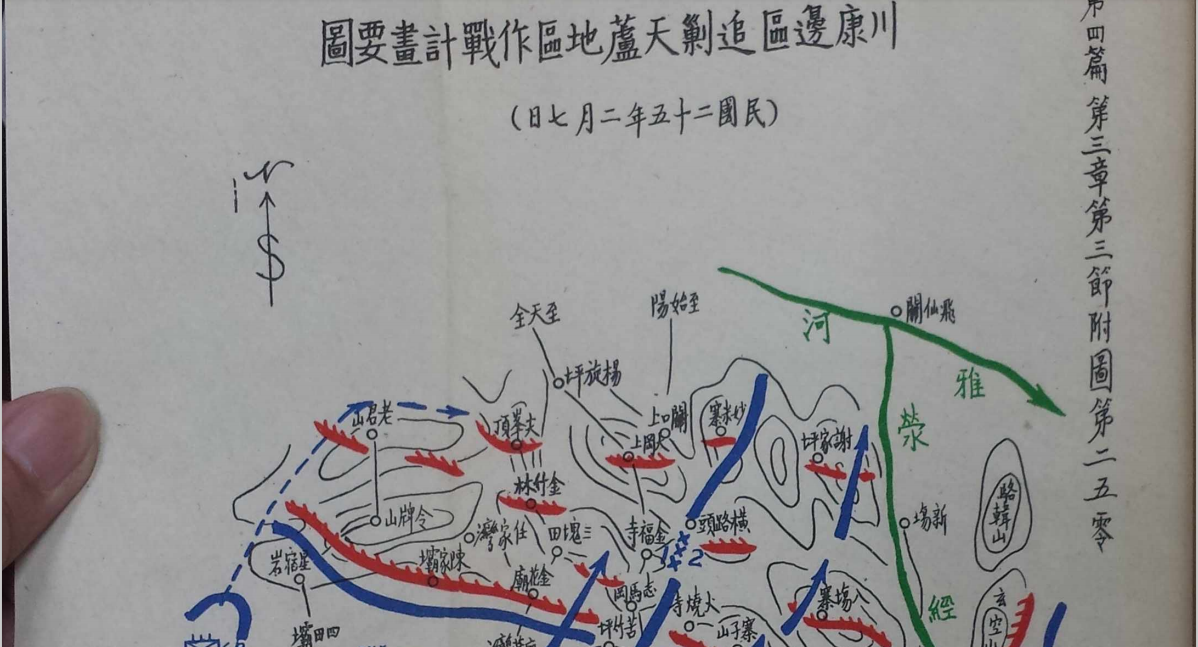 川康邊區追剿天蘆地區作戰計畫要圖
(民國二十五年二月七日)
第四篇第三章第三節附圖第二五零
N
S
至天全
至始陽
飛仙關
河
雅
滎
經
楊旋坪
老君山
關口上
妙米寨
謝家坪
金竹林
令牌山
任家灣
三塊田
金福寺
橫路頭
新塲
駱韓山
xxx
2
星宿岩
陳家壩
金花廟
志馬岡
火燒寺
八塲寨
四田壩
苦竹坪
寨子山
玄空山